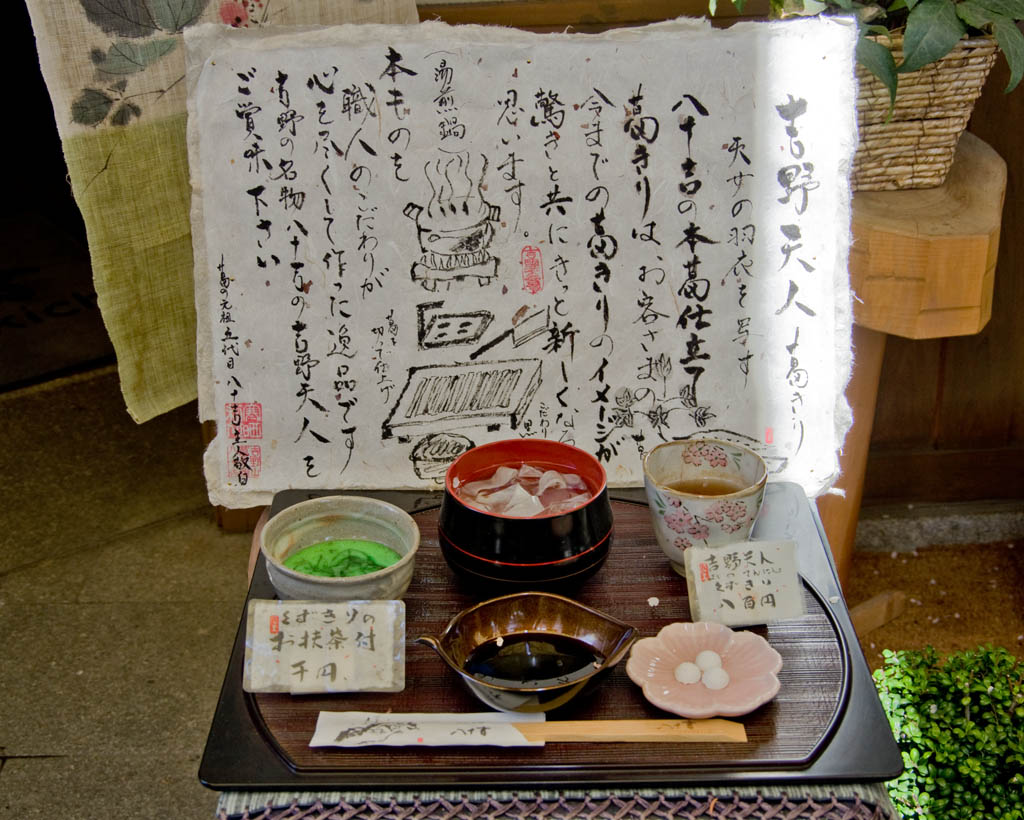 吉野天人 葛きり
天女の羽衣を写す
八十吉の本葛仕立て
葛きりはお客さまの
今までの葛きりのイメージが
驚きと共にきっと新しくなる
思います。
（湯煎鍋）
本ものを
職人のこだわりが
心を尽くして作った逸品です
吉野の名物 八十吉の吉野天人を
ご賞味下さい
葛を
切って仕上げ
こだわり
葛の元祖 五代目 八十吉
敬白
吉野天人
八百円
くずきりの
お抹茶付
千円
八十吉